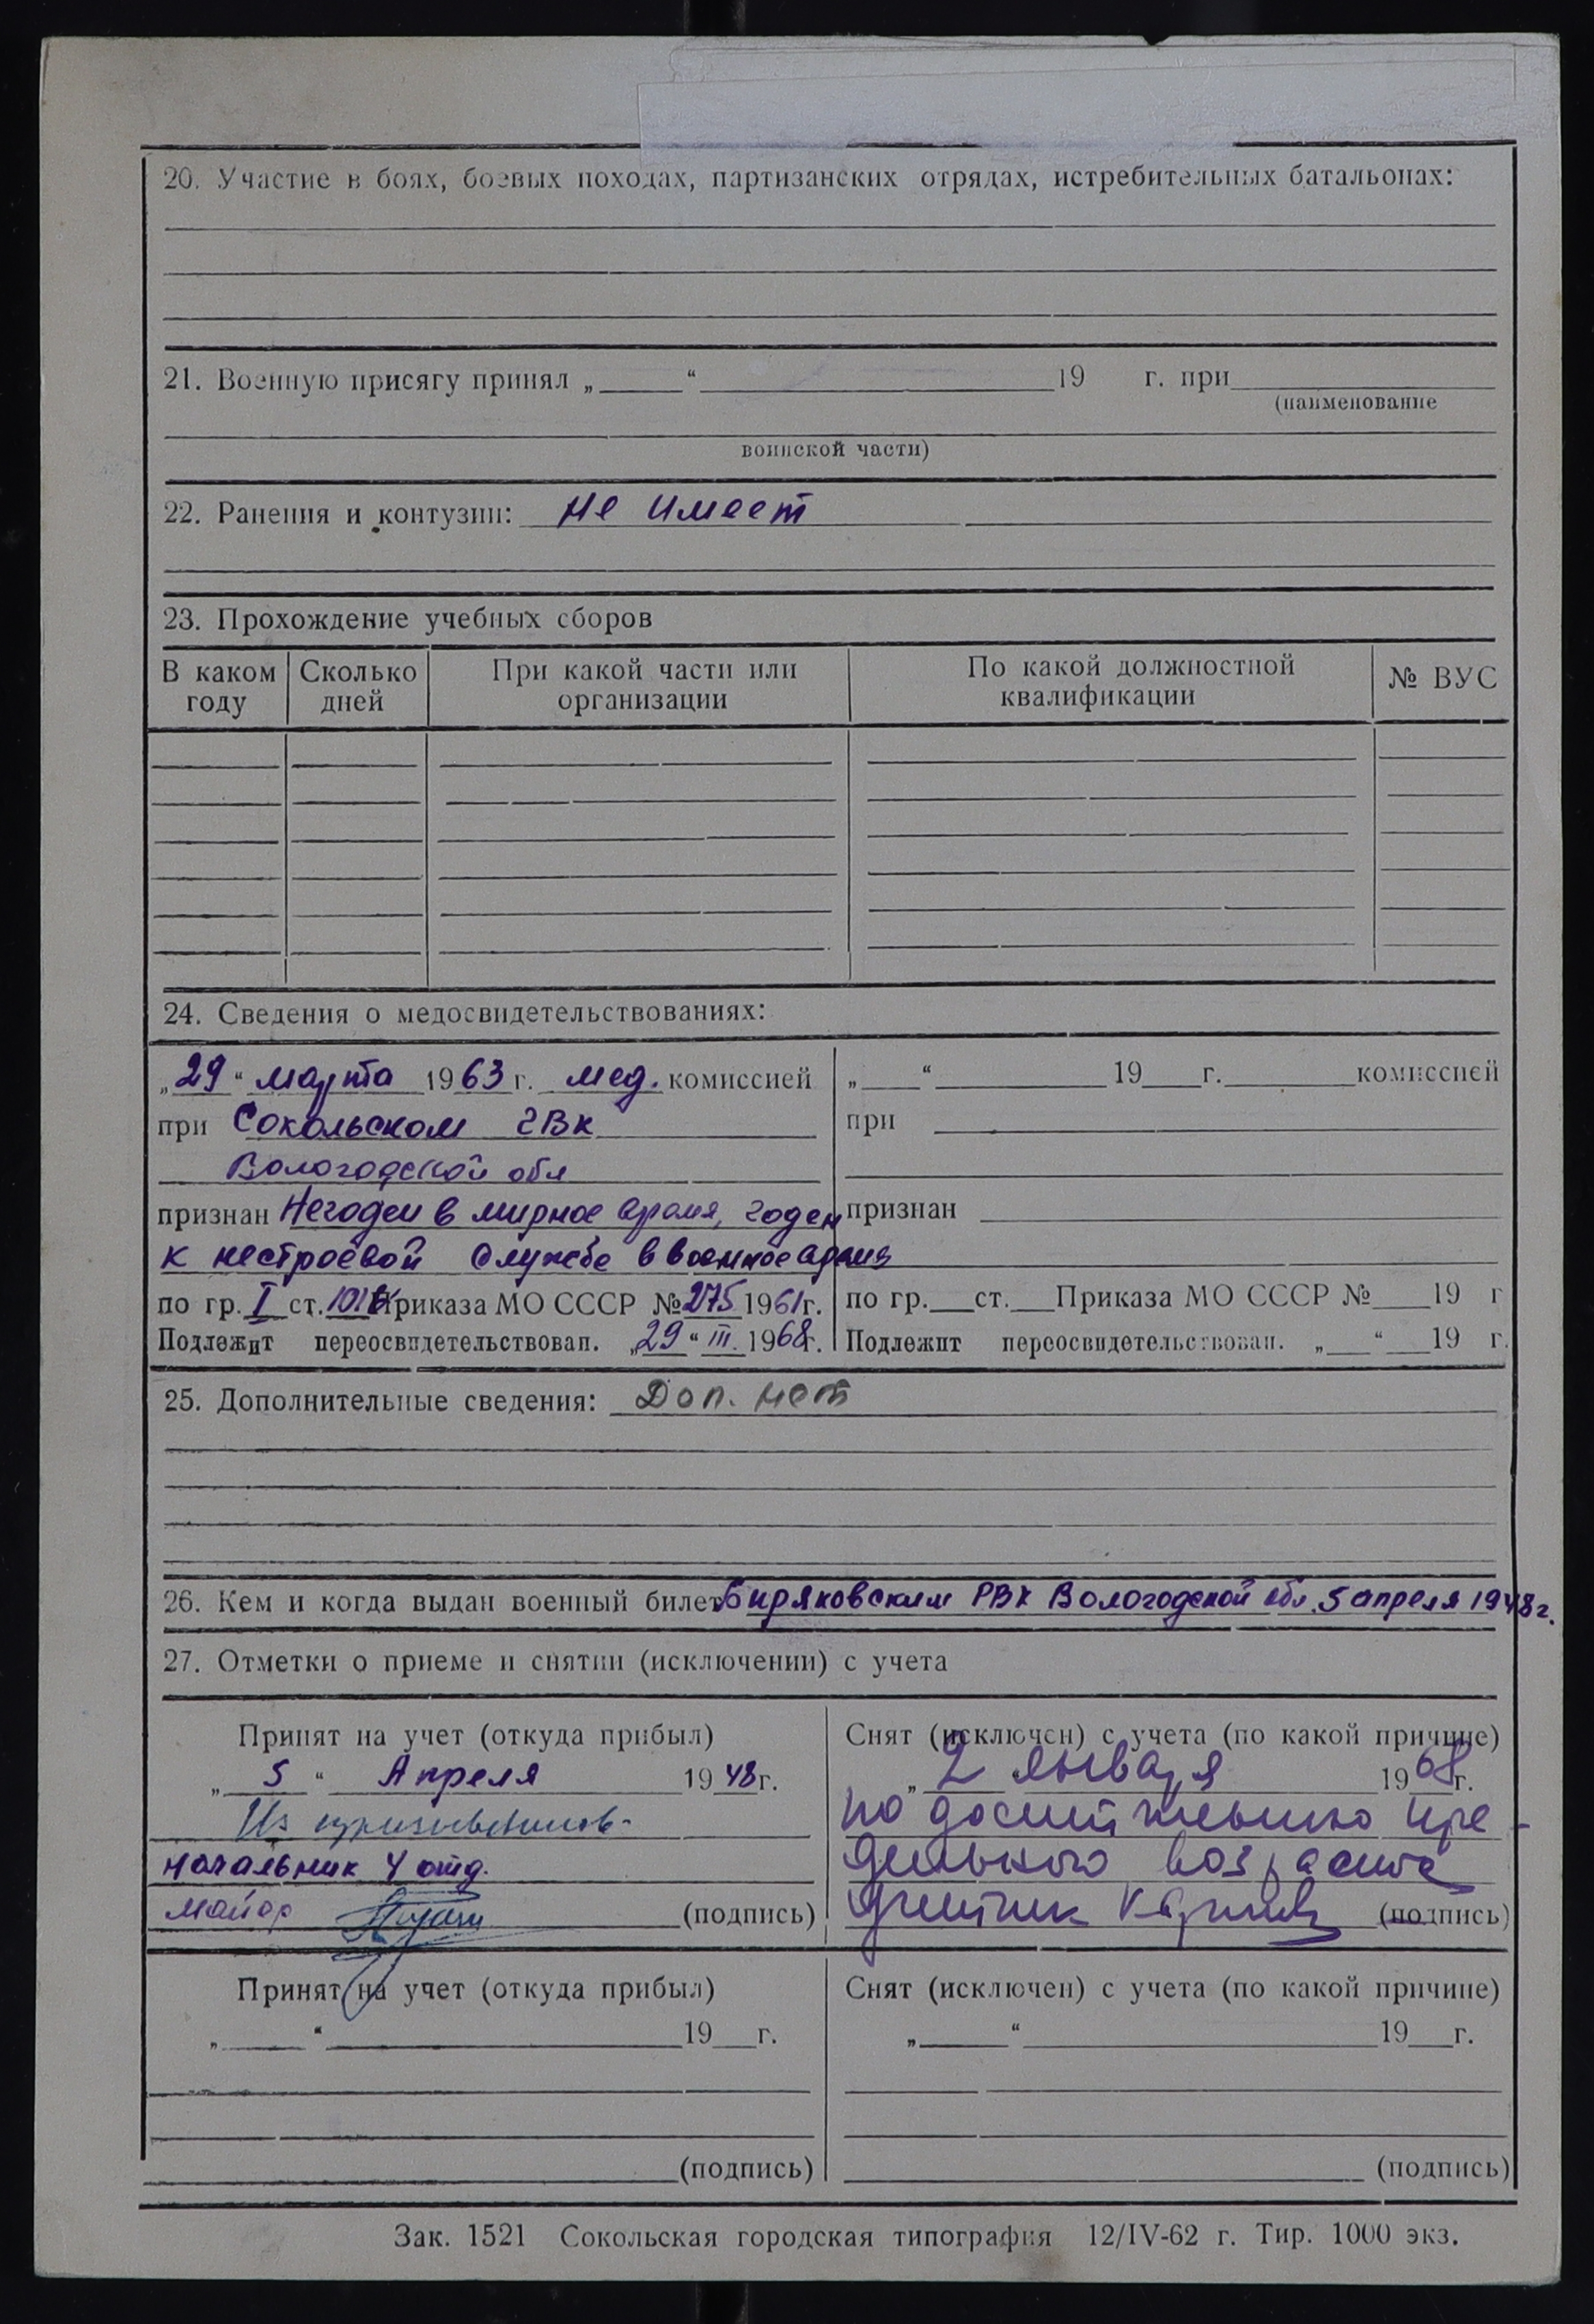 20. Участие в боях, боевых походах, партизанских отрядах, истребительных батальонах:
21. Военную присягу принял „ “ 19 г. при
(наименование
воинской части)
22. Ранения и контузии: не имеет
23. Прохождение учебных сборов
В каком году
Сколько дней
При какой части или организации
По какой должностной квалификации
№ ВУС
24. Сведения о медосвидетельствованиях:
„29“ марта 1963 г. мед. комиссией
при Сокольском ГВК
Вологодской обл
признан Негоден в мирное время, годен
к нестроевой службе в военное время
по гр. I ст. Приказа МО СССР № 275 1961 г.
Подлежит переосвидетельствован. „29“ III. 1968 г.
„ “ 19 г. комиссией
при
признан
по гр. ст. Приказа МО СССР № 19 г
Подлежит переосвидетельствован. „ “ 19 г.
25. Дополнительные сведения: Доп. нет
26. Кем и когда выдан военный билет Биряковским РВК Вологодской обл. 5 апреля 1948 г.
27. Отметки о приеме и снятии (исключении) с учета
Принят на учет (откуда прибыл)
„5“ Апреля 1948 г.
Из
начальник 4 отд.
майор (подпись)
Снят (исключен) с учета (по какой причине)
„2 января 1968 г.
по достижению пре-
дельного возраста
(подпись)
Принят на учет (откуда прибыл)
„ “ 19 г.
(подпись)
Снят (исключен) с учета (по какой причине)
„ “ 19 г.
(подпись)
Зак. 1521 Сокольская городская типография 12/IV-62 г. Тир. 1000 экз.